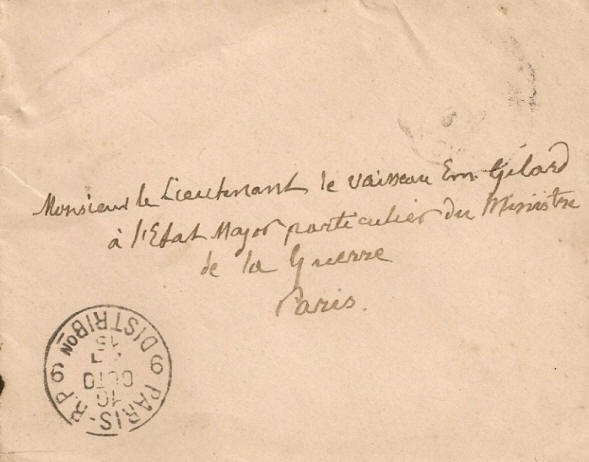 Monsieur le Lieutenant de vaisseau Em Gélard
à l'Etat Major particulier du Ministre
de la Guerre
Paris.
PARIS-R.P
DISTRIBon
16
OCTO
15